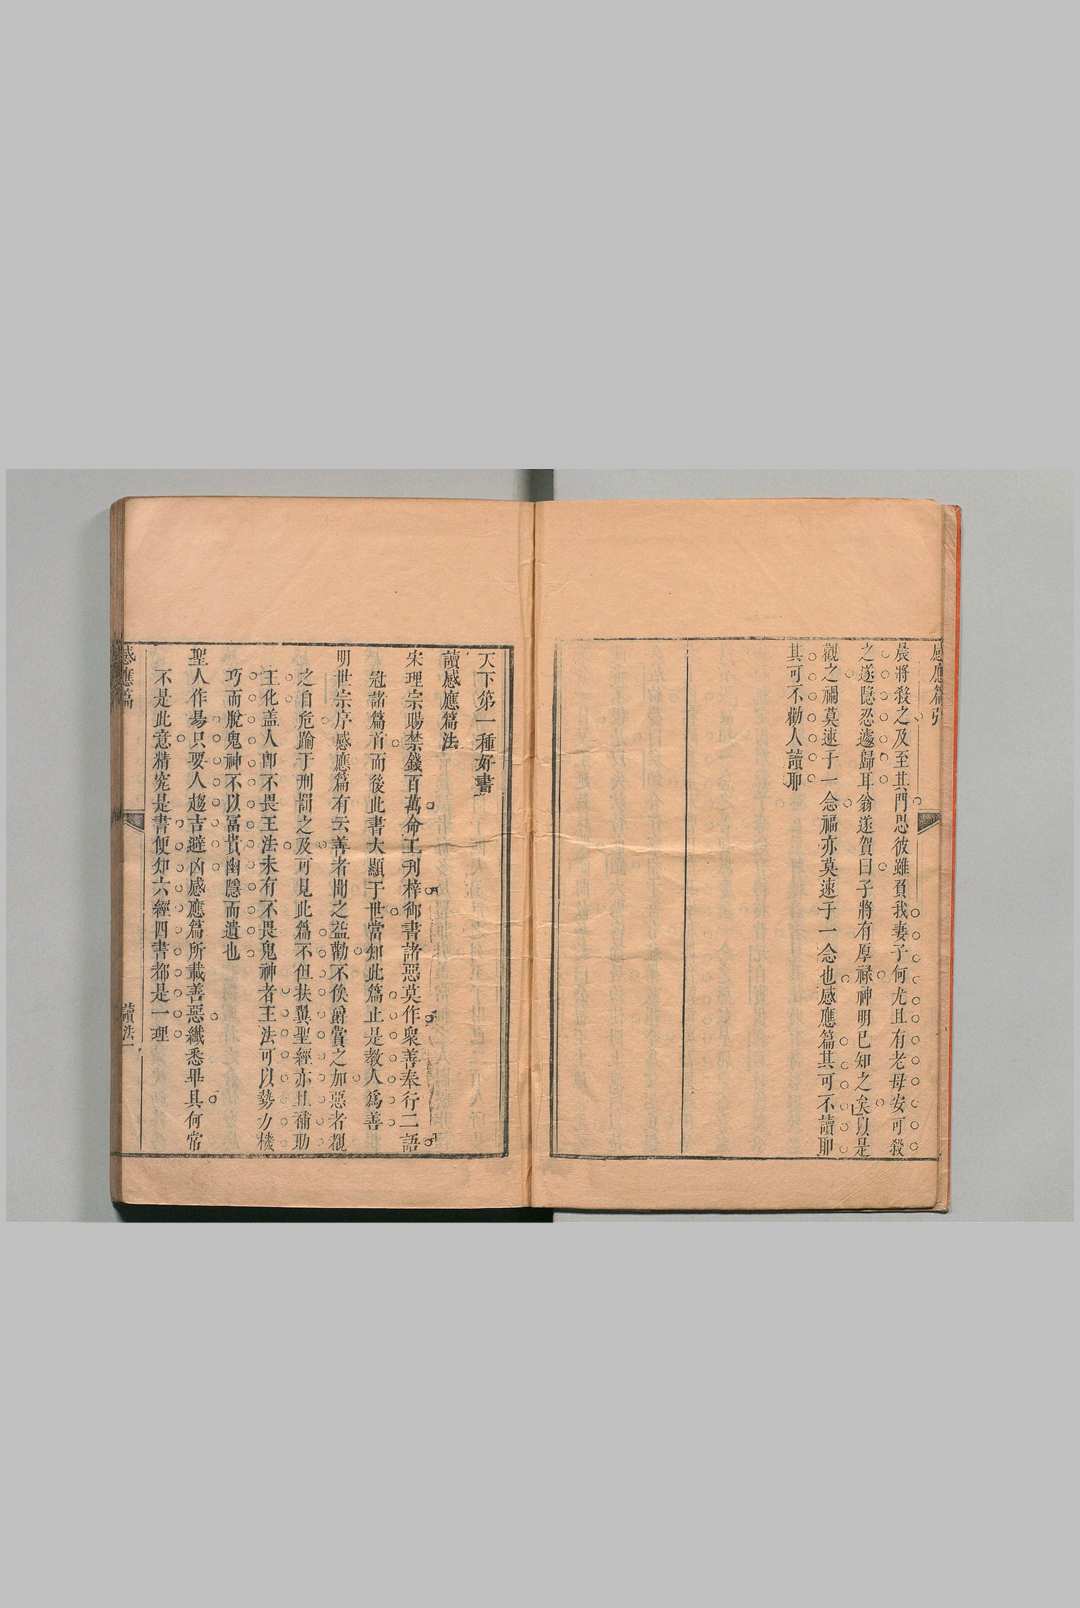 感應篇引
晨將殺之及至其門思彼雖負我妻子何尤且有老母安可殺
之遂隱忍遽歸耳翁遂賀曰子將有厚祿神明已知之矣以是
觀之禍莫速于一念福亦莫速于一念也感應篇其可不讀耶
其可不勸人讀耶
天下第一種好書
讀感應篇法
宋理宗賜禁錢百萬命工刋梓御書諸惡莫作衆善奉行二語
冠諸篇首而後此書大顯于世當知此篇止是教人爲善
明世宗序感應篇有云善者聞之益勸不俟爵賞之加惡者覩
之自危踰于刑罰之及可見此篇不但扶翼聖經亦且補助
王化盖人卽不畏王法未有不畏鬼神者王法可以勢力機
巧而脫鬼神不以冨貴幽隱而遺也
聖人作易只要人趨吉避凶感應篇所載善惡纖悉畢具何常
不是此意精究是書便知六經四書都是一理
感應篇
讀法一